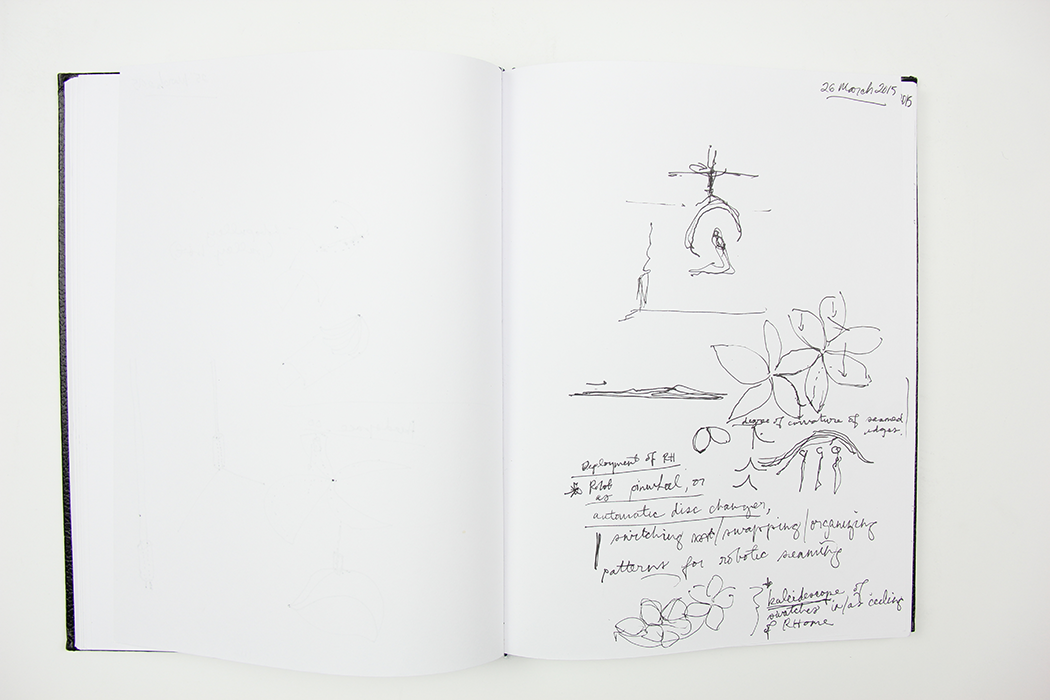 26 March 2015
'015
degree of curvature of seamed
edges.
Deployment of RH
* Robot
as pinwheel, or
automatic disc changer,
switching /swapping/organizing
patterns for robotic seaming
* kaleidoscope of
swatches in/as ceiling
of RHome